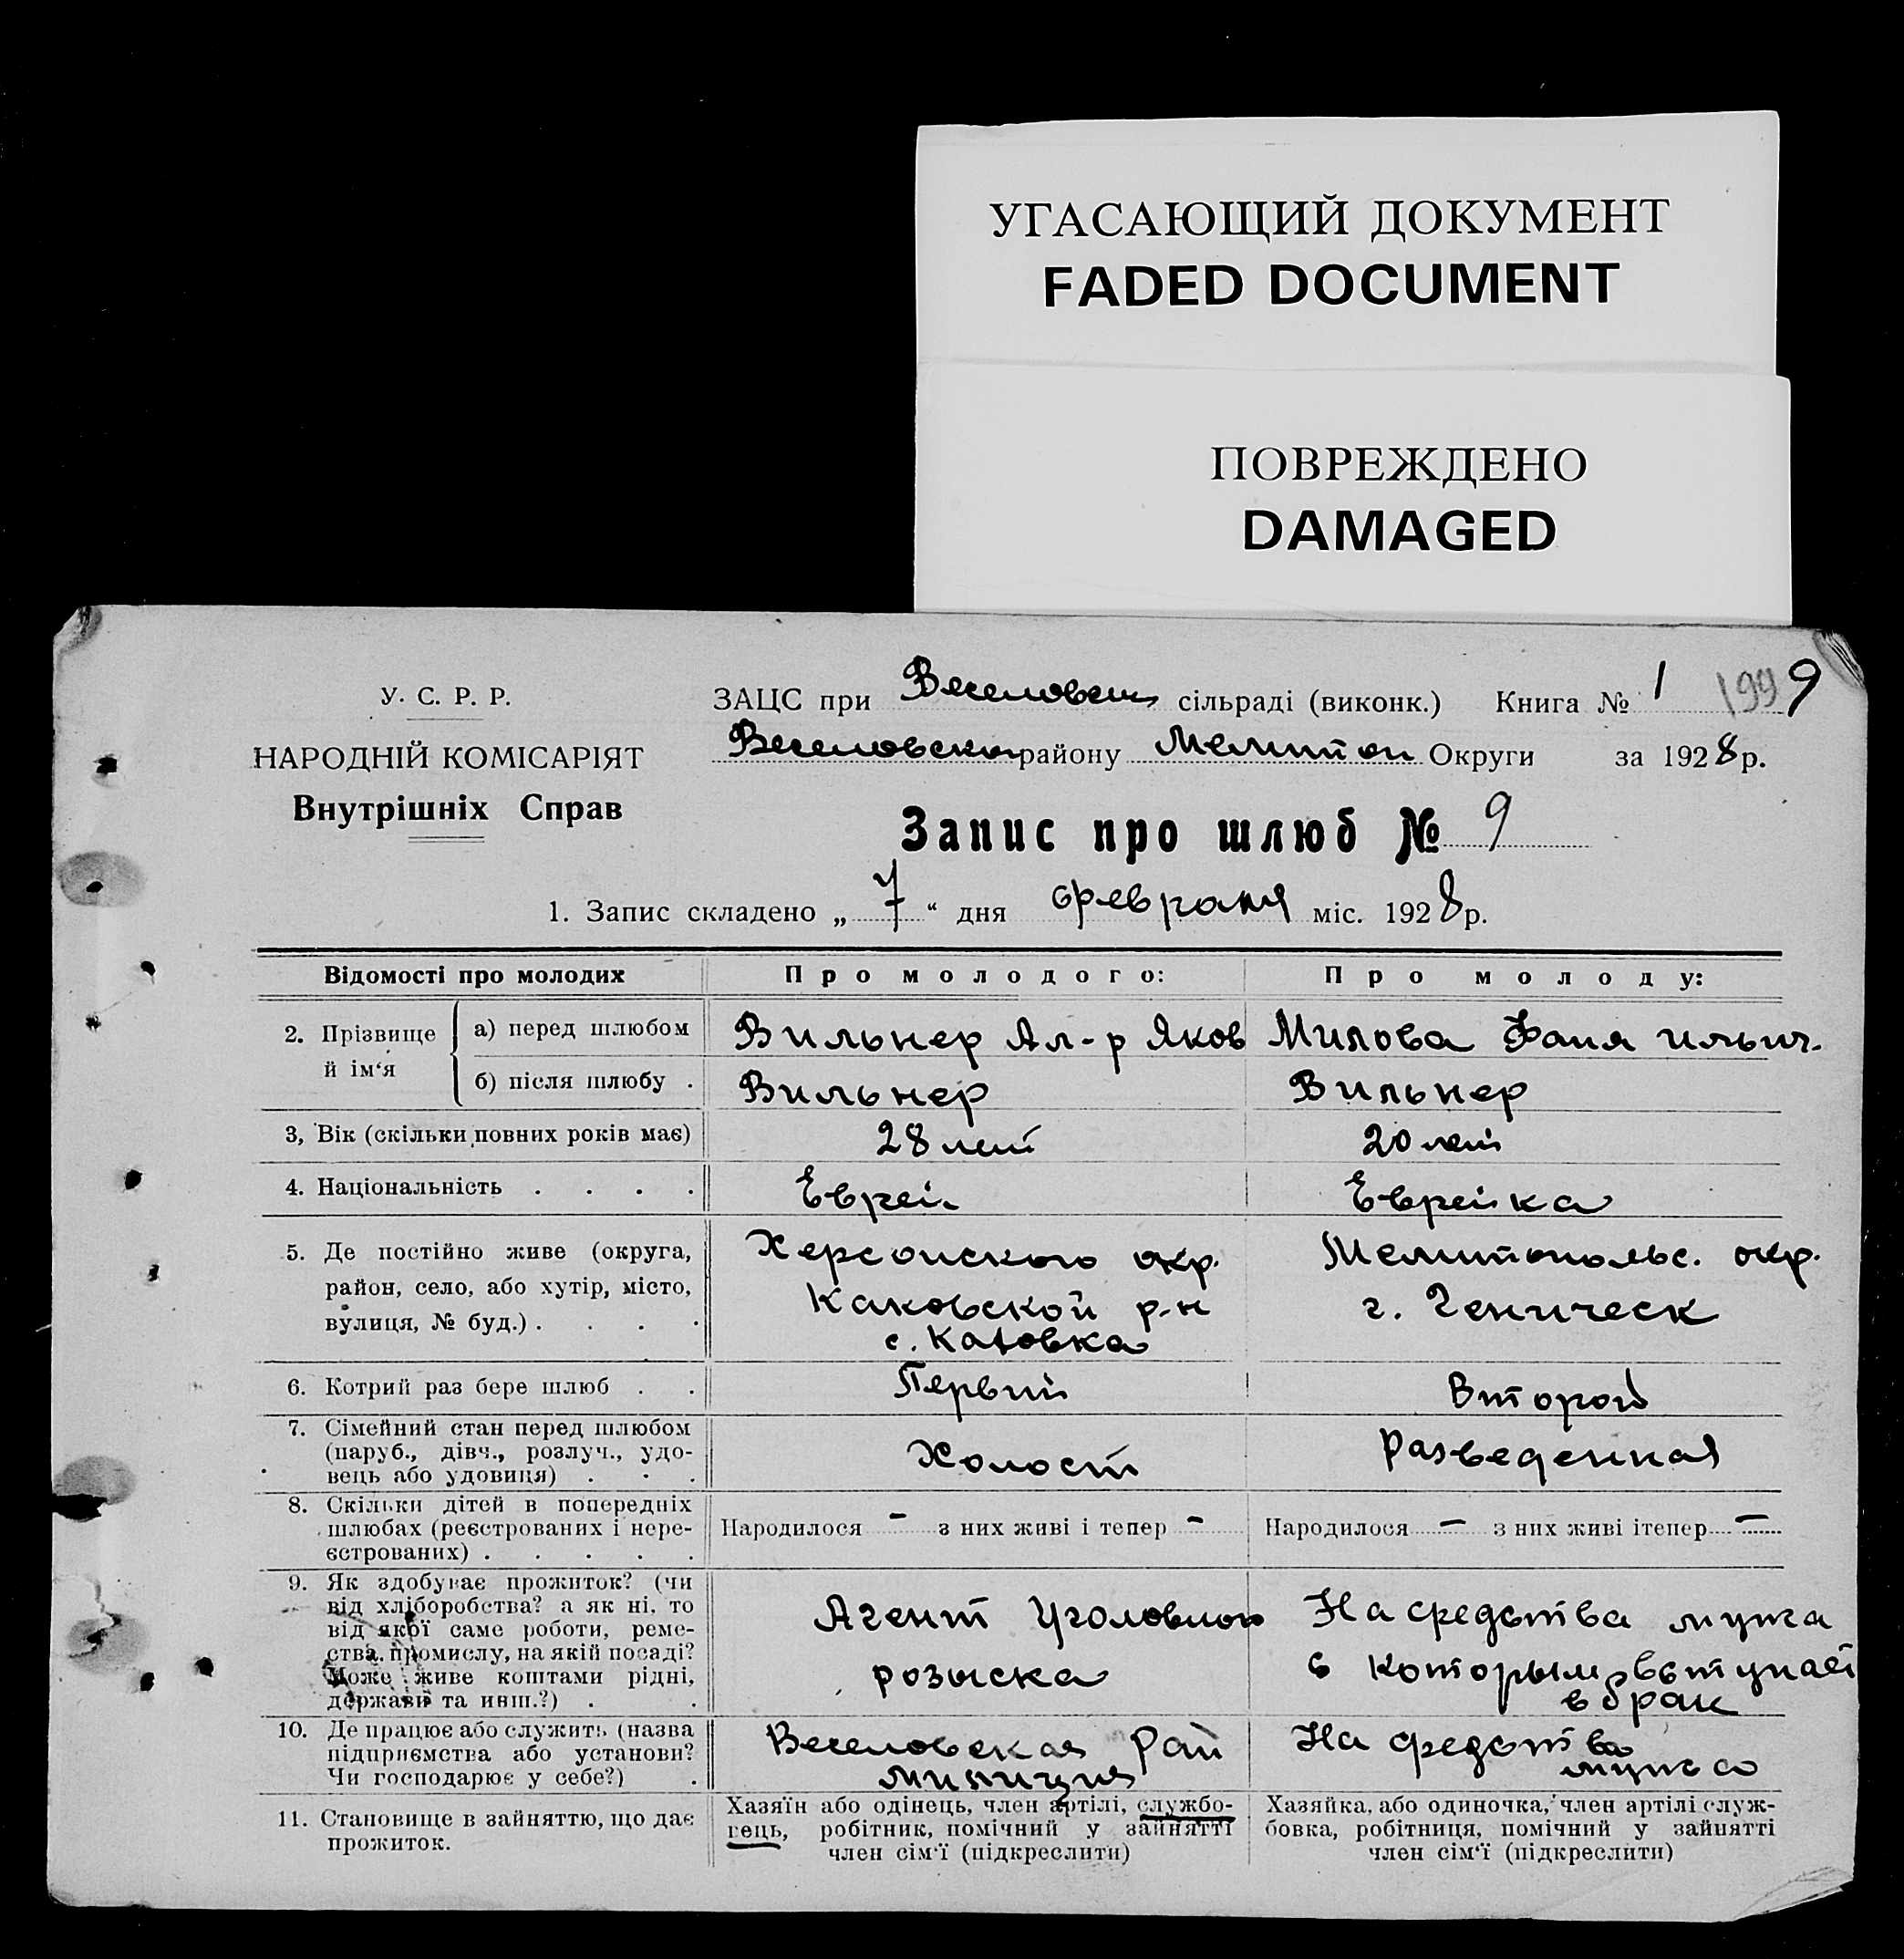 УГАСАЮЩИЙ ДОКУМЕНТ
FADED DOCUMENT
ПОВРЕЖДЕНО
DAMAGED
У. С. Р. Р.
НАРОДНІЙ КОМІСАРІЯТ
Внутрішніх Справ
ЗАЦС при Веселовск сільраді (виконк.) Книга № 1 199 9
Веселовског району Мелитоп Округи за 1928 р.
Запис про шлюб № 9
1. Запис складено „ 7 “ дня февраля міс. 1928 р.
Відомості про молодих
Про молодого:
Про молоду:
2. Прізвище й ім‘я
а) перед шлюбом
Вильнер Ал-р Яков
Милова Фаня Ильин.
б) після шлюбу .
Вильнер
Вильнер
3, Вік (скільки повних років має)
28 лет
20 лет
4. Національність . . . .
Еврей
Еврейка
5. Де постійно живе (округа,
район, село, або хутір, місто,
вулиця, № буд.) . . . .
Херсонского окр.
Каховской р-н
с. Каховка
Мелитопольс. окр.
г. Геническ
6. Котрий раз бере шлюб . .
Первый
Второй
7. Сімейний стан перед шлюбом
(паруб., дівч., розлуч., удо-
вець або удовиця) . . .
Холост
Разведенная
8. Скільки дітей в попередніх
шлюбах (реєстрованих і нере-
єстрованих) . . . . .
Народилося - з них живі і тепер -
Народилося — з них живі ітепер —
9. Як здобуває прожиток? (чи
від хліборобства? а як ні, то
від якої саме роботи, реме-
ства, промислу, на якій посаді?
Може живе коштами рідні,
держави та инш.?) . .
Агент Уголовного
розыска
На средства мужа
с которым вступает
в брак
10. Де працює або служить (назва
підприємства або установи?
Чи господарює у себе?) .
Веселовская Рай
милиция
На средства
мужа
11. Становище в зайняттю, що дає
прожиток.
Хазяїн або одінець, член артілі, службо-
вець, робітник, помічний у зайнятті
член сім‘ї (підкреслити)
Хазяйка, або одиночка, член артілі служ-
бовка, робітниця, помічний у зайнятті
член сім‘ї (підкреслити)